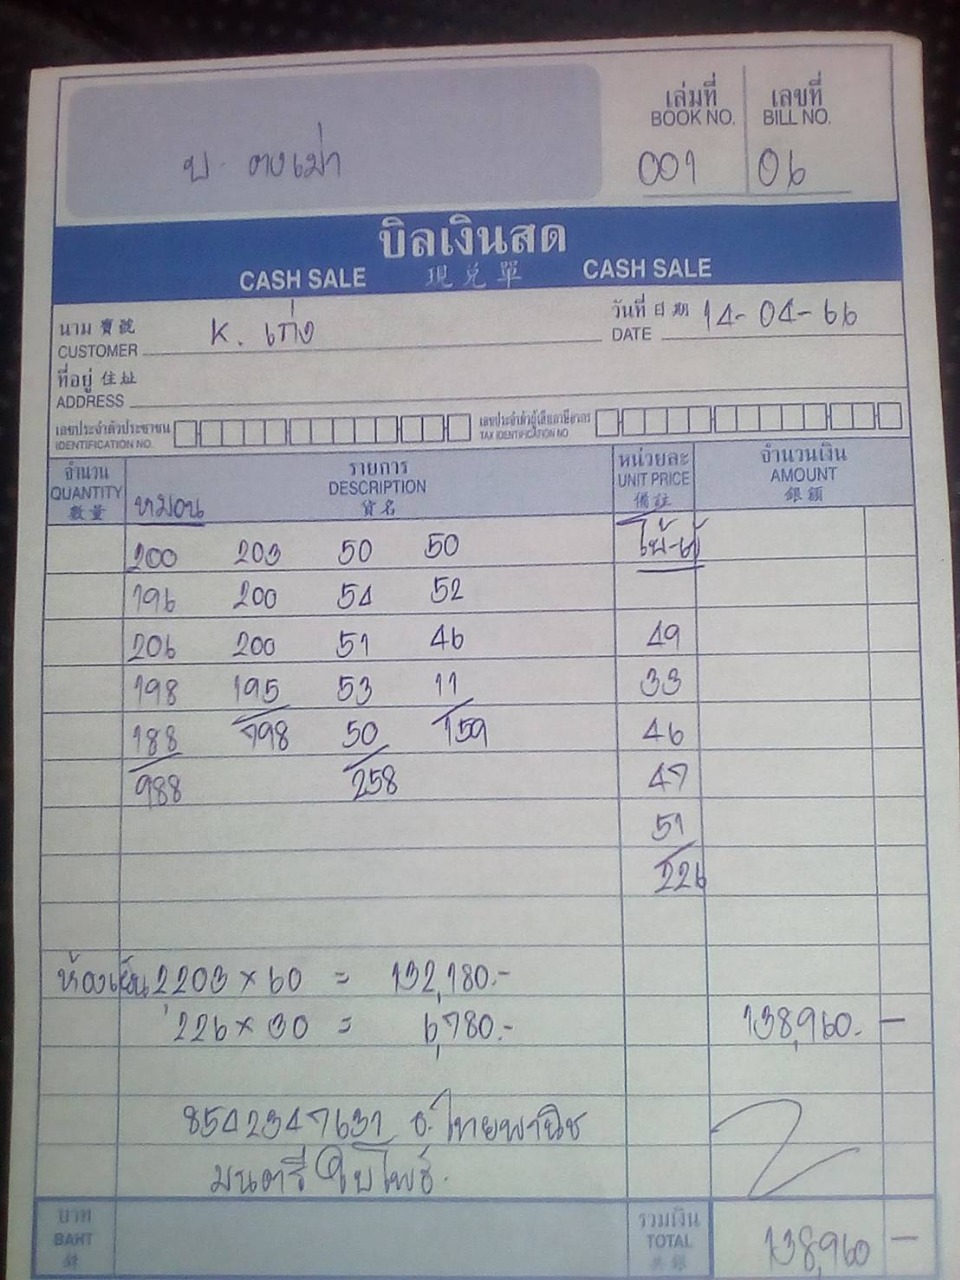 เล่มที่ เลขที่
BOOK NO. BILL NO.
บ. ตงเม่า 001 06
บิลเงินสด
CASH SALE 現兌單 CASH SALE
นาม寶號 K. เก่ง วันที่ 日期 14-04-66
CUSTOMER DATE
ที่อยู่ 住址
ADDRESS
เลขประจำตัวประชาชน เลขประจำตัวผู้เสียภาษีอากร
IDENTIFICATION NO. TAX IDENTIFICATION NO
จำนวน รายการ หน่วยละ จำนวนเงิน
QUANTITY DESCRIPTION UNIT PRICE AMOUNT
數量 หมอน 貨名 備註 銀額
200 203 50 50
196 200 54 52
206 200 51 46 49
198 195 53 11 33
188 798 50 159 46
988 258 47
51
226
ห้องเย็น 2203 × 60 = 132,180.-
226 × 30 = 6,780.- 138,960. -
8542347631 ธ.ไทยพานิช
มนตรี ใบโพธ์.
บาท รวมเงิน
BAHT TOTAL 138,960 -